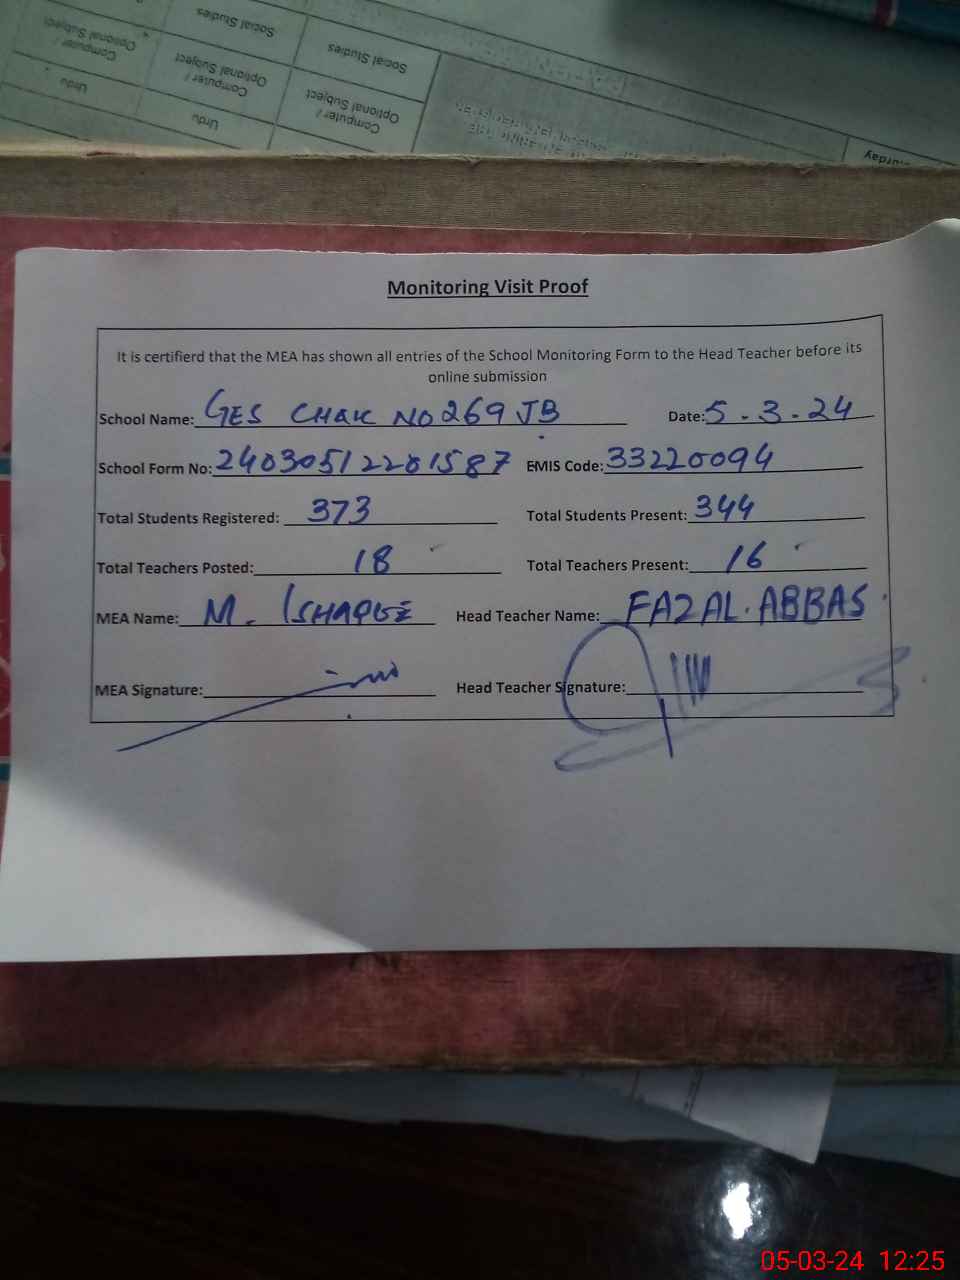 Social Studies
Social Studies
Computer /
Optional Subject
Computer /
Optional Subject
Computer /
Optional Subject
Urdu
Urdu
Monitoring Visit Proof
It is certifierd that the MEA has shown all entries of the School Monitoring Form to the Head Teacher before its
online submission
School Name: GES CHAK NO 269 JB Date: 5-3-24
School Form No: 24030512201587 EMIS Code: 33220094
Total Students Registered: 373 Total Students Present: 344
Total Teachers Posted: 18 Total Teachers Present: 16
MEA Name: M. ISHAQUE Head Teacher Name: FAZAL ABBAS
MEA Signature: Head Teacher Signature:
05-03-24 12:25